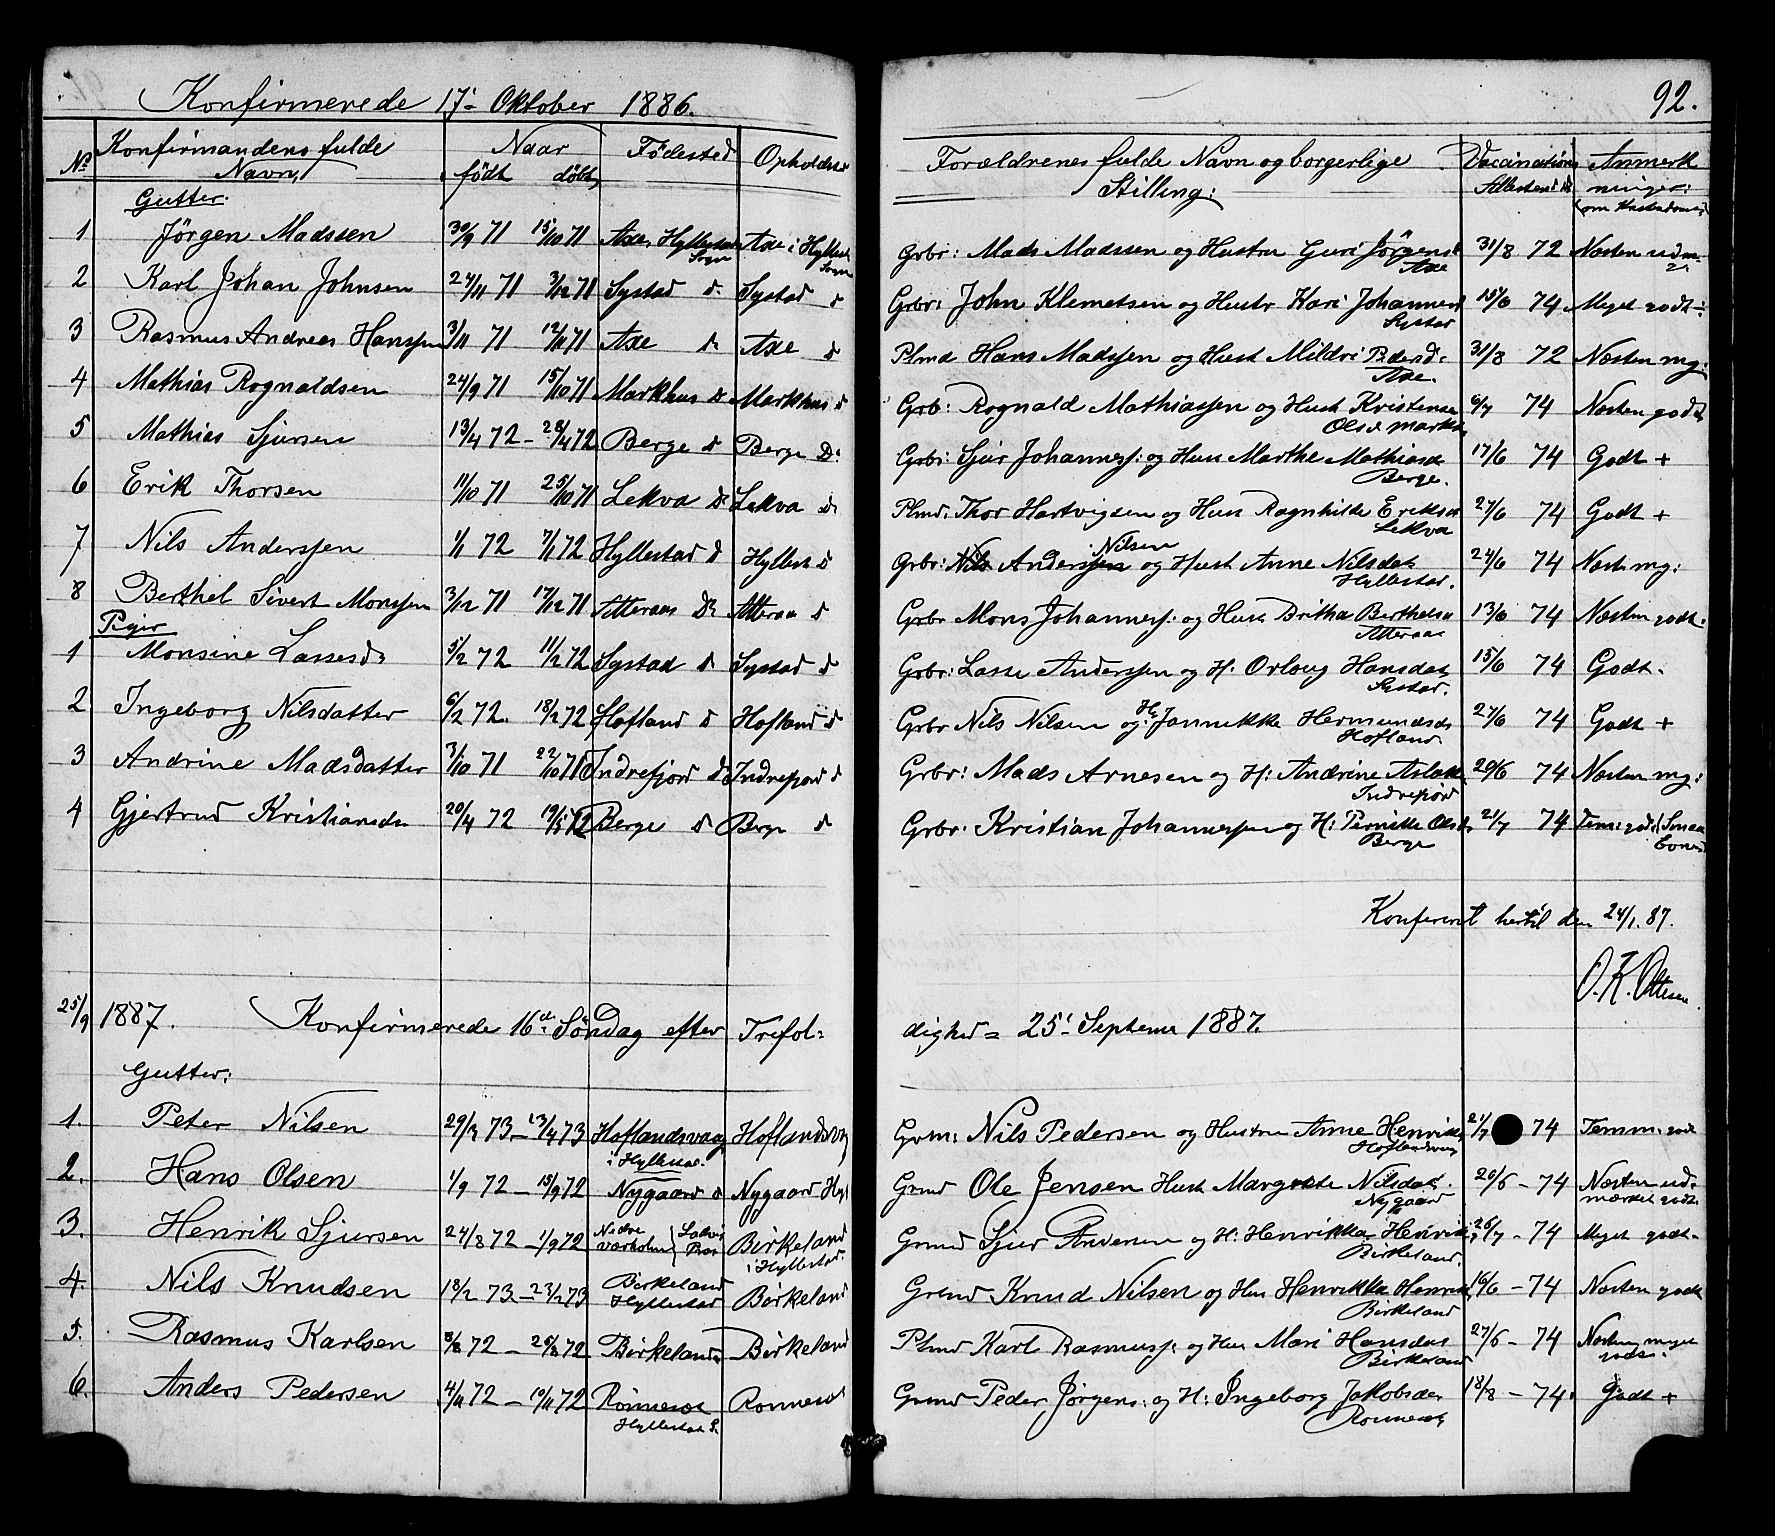 Konfirmerede 17' Oktober 1886.
92.
No Konfirmandens fulde Navn, Naar født døbt, Fødested Opholdsst Forældrenes fulde Navn og borgerlige Stilling: Vaccinations Attestens Anmerkninger: (om Kristendoms)
Gutter:
1 Jörgen Madssen 30/9 71 15/10 71 Axe, Hyllestad Sogn Axe i Hyllest Sogn Grbr: Mads Madssen og Hustru Guri Jörgensd Axe 31/8 72 Næsten udm.
2 Karl Johan Johnsen 24/11 71 3/12 71 Systad d. Systad d Grbr: John Klemetsen og Hustr Kari Johannesd Systad 15/6 74 Meget godt ÷
3 Rasmus Andreas Hanssen 3/11 71 12/11 71 Axe d Axe d Plmd Hans Madssen og Hust Mildri Pedersd: Axe. 31/8 72 Næsten mg:
4 Mathias Rognaldsen 24/9 71 15/10 71 Markhus d Markhus d Grb: Rognald Mathiassen og Hust Kristense Olsd Markh. 6/7 74 Næsten godt
5 Mathias Sjursen 13/4 72 - 28/4 72 Berge d Berge D: Grbr: Sjur Johanness: og Hus Marthe Mathiasd Berge. 17/6 74 Godt +
6 Erik Thorsen 11/10 71 25/10 71 Lekva d Lekva d: Plmd: Thor Hartvigsen og Hus Ragnhilde Eriksd Lekva 27/6 74 Godt +
7 Nils Anderssen 1/1 72 7/1 72 Hyllestad d Hyllest d Grbr: Nils Anderssen Nilsen og Hust Anne Nilsdat Hyllestad. 24/6 74 Næst mg:
8 Berthel Sivert Monssen 3/12 71 17/12 71 Atteraas D: Atteraa d Grbr Mons Johanness: og Hust Britha Berthelsd Atteraas 13/6 74 Næsten godt:
Piger
1 Monsine Lassesd: 5/2 72 11/2 72 Systad d Systad d Grbr: Lasse Anderssen og H: Orloug Hansdat Systad. 15/6 74 Godt.
2 Ingeborg Nilsdatter 6/2 72. 18/2 72 Hofland d Hofland d Grbr Nils Nilsen og H: Jannikke Hermundsd: Hofland. 27/6 74 Godt +
3 Andrine Madsdatter 3/10 71 22/10 71 Indrefjord d Indrefjord d Grbr: Mads Arnesen og H: Andrine Aslakd Indrefjord 20/6 74 Næsten mg:
4 Gjertrud Kristiansd: 20/4 72 19/5 72 Berge d Berge d Grbr: Kristian Johannessen og H: Pernille Olsd Berge 21/7 74 Tem: godt (Smaa Evner)
Konfereret hertil den 24/1. 87.
O. K. Ottesen
25/9 1887. Konfirmerede 16de Søndag efter Trefoldighed = 25' September 1887.
Gutter:
1. Peter Nilsen 29/3 73 - 13/4 73 Hoflandsvaag i Hyllestad. Hoflandsvg Grm: Nils Pedersen og Hustru Anne Henriksd Hoflandsvaag 21/7 74 Temm: godt
2. Hans Olsen 1/9 72 - 15/9 72 Nygaard d Nygaard Hyl Grmd Ole Jensen Hust Margrete Nilsdat. Nygaard 26/6 - 74 Næsten udmærket godt.
3. Henrik Sjursen 24/8 72 - 1/9 72 Nedre Værholm Birkeland i Hyllestad. Grmd Sjur og H: Henrikka Henriksd Birkeland. 26/7 - 74 Meget godt -
4. Nils Knudsen 18/2 73 - 23/2 73 Birkeland Hyllestad Birkeland Grmd Knud Nilsen og Hus Henrikka Henriksd Birkeland 16/6 - 74 Næsten godt
5. Rasmus Karlsen 8/8 72 - 25/8 72 Birkeland Birkeland Plmd Karl Rasmuss: og Hus Mari Hansdat Birkeland 27/6 - 74 Næsten meget godt.
6. Anders Pedersen 4/11 72 - 10/11 72 Rönneset Hyllestad S. Ronneset Grmd Peder Jørgens: og H: Ingeborg Jakobsdat Rönneset 18/8 - 74. Godt +